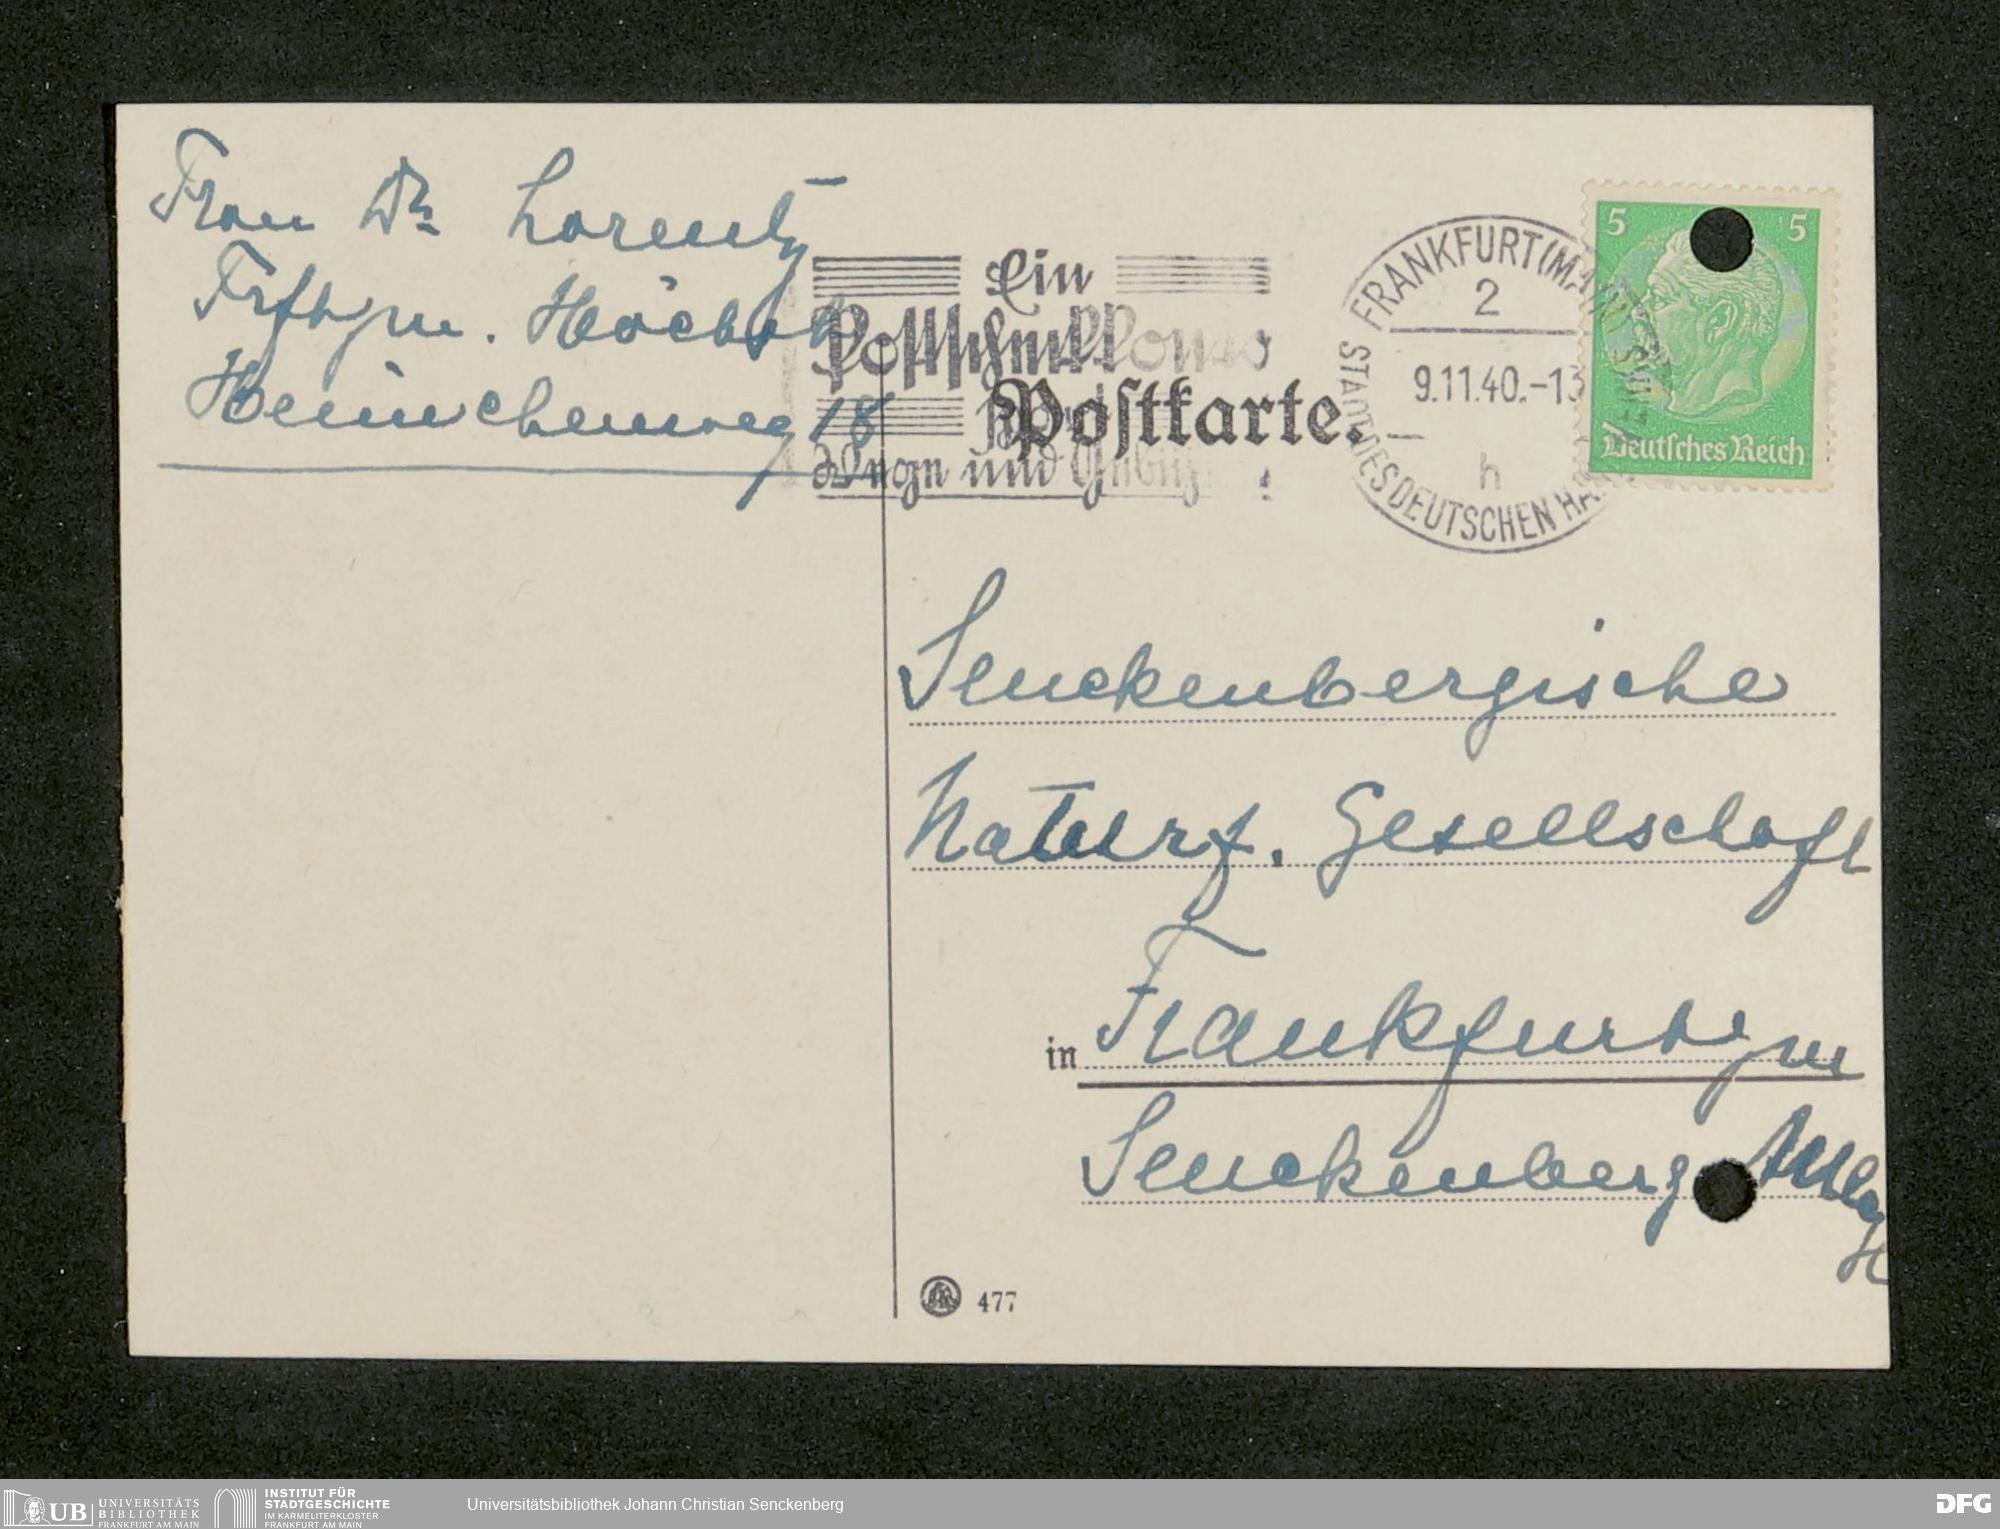 Frau Dr. Lorentz
Frkft/m. Höchst
Heimchenweg 18
Ein
Postscheckkonto
Postkarte.
Wege und
FRANKFURT (MAIN)
2
9.11.40.-13
h
STADT DES DEUTSCHEN HA
5 5
Deutsches Reich
Senckenbergische
Naturf. Gesellschaft
in Frankfurt/m
Senckenberg Anlage
477
UB UNIVERSITÄTS
BIBLIOTHEK
FRANKFURT AM MAIN
INSTITUT FÜR
STADTGESCHICHTE
IM KARMELITERKLOSTER
FRANKFURT AM MAIN
Universitätsbibliothek Johann Christian Senckenberg
DFG